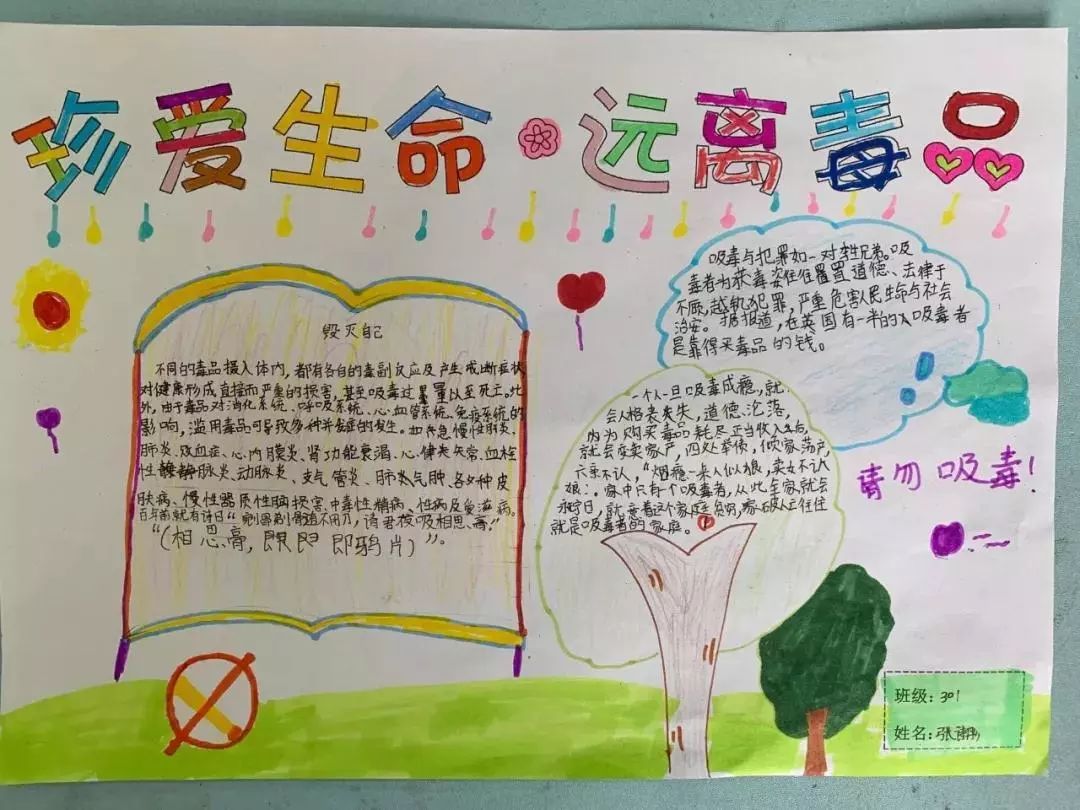 珍爱生命·远离毒品
毁灭自己
不同的毒品摄入体内,都有各自的毒副反应及产生戒断症状
对健康形成直接而严重的损害,甚至吸毒过量以至死亡。此
外,由于毒品对消化系统、呼吸系统、心血管系统、免疫系统的
影响,滥用毒品可导致多种并发症的发生。如急慢性肝炎、
肺炎、败血症、心内膜炎、肾功能衰渴、心律失常、血栓
性静脉炎、动脉炎、支气管炎、肺炎气肿、各种皮
肤病、慢性器质性脑损害、中毒性精病、性病及爱滋病。
百年前就有诗曰"剜骨剃骨道不用刀,请君夜吸相思膏"
"(相思膏,即鸦片)"。
吸毒与犯罪如一对孪兄弟。吸
毒者为获毒姿往往置置道德、法律于
不顾,越轨犯罪,严重危害人民生命与社会
治安。据报道,在英国有一半的人吸毒者
是靠得买毒品的钱。
一个人一旦吸毒成瘾,就
会人格丧失,道德沦落,
为购买毒品耗尽正当收入后,
就会变卖家产,四处举债,倾家荡产,
六亲不认,"烟瘾一来人似狼,卖女不认
娘:。家中只有个吸毒者,从此全家就会
永宁日,就意着这个家庭贫穷,家破人往往
就是吸毒者的家庭。
请勿吸毒!
班级:301
姓名:张